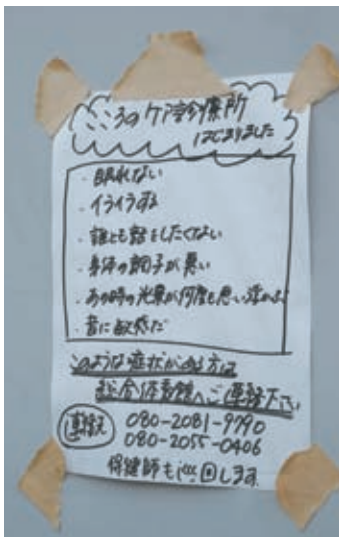 こころのケア診療所
はじまりました
・眠れない
・イライラする
・誰とも話をしたくない
・身体の調子が悪い
・あの時の光景が何度も思い浮かぶ
・音に敏感だ
このような症状がある方は
総合体育館へご連絡下さい
連絡先 080-2081-9790
080-2055-0406
保健師も巡回します